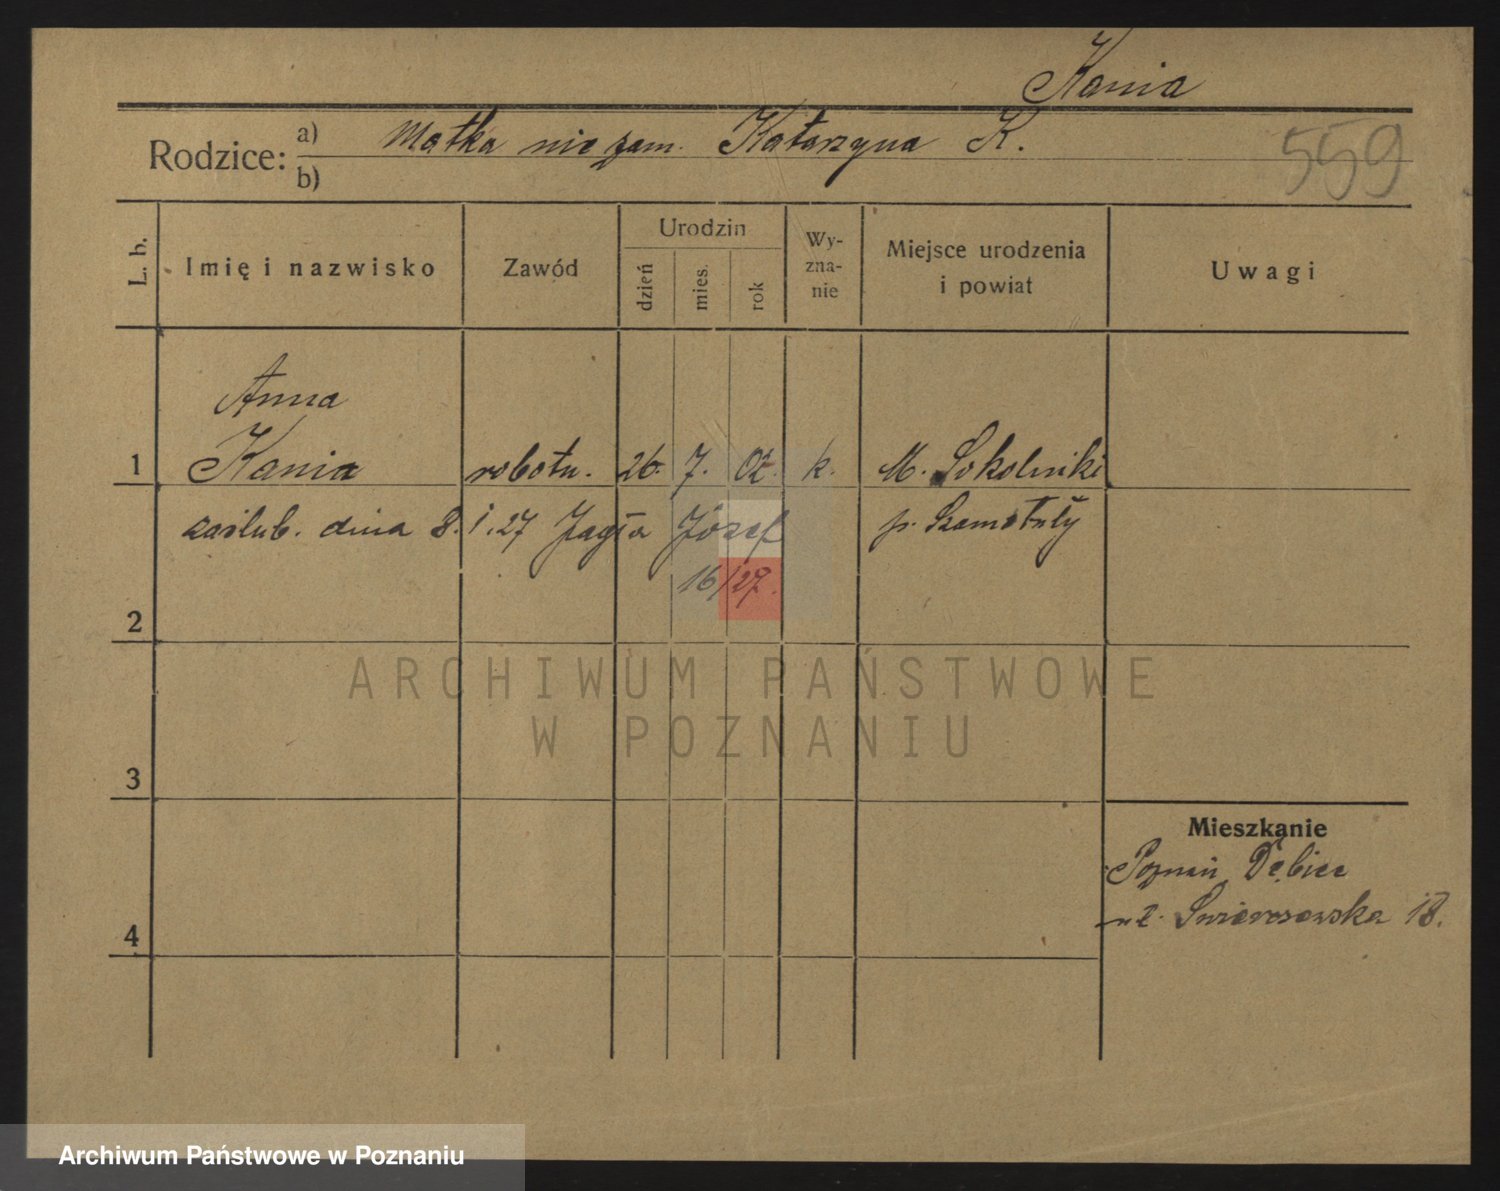 Kania
Rodzice: a) Matka niezam. Katarzyna K.
b)
559
L. b.
Imię i nazwisko
Zawód
Urodzin
dzień
mies.
rok
Wy-
zna-
nie
Miejsce urodzenia
i powiat
Uwagi
Anna
1 Kania robotn. 26. 7. 02. k. M. Sokolniki
zaślub. dnia 8.1.27 Jagła Józef p. Szamotuły
16/27.
2
ARCHIWUM PAŃSTWOWE
W POZNANIU
3
Mieszkanie
Poznań Dębiec
4 ul. 18.
Archiwum Państwowe w Poznaniu